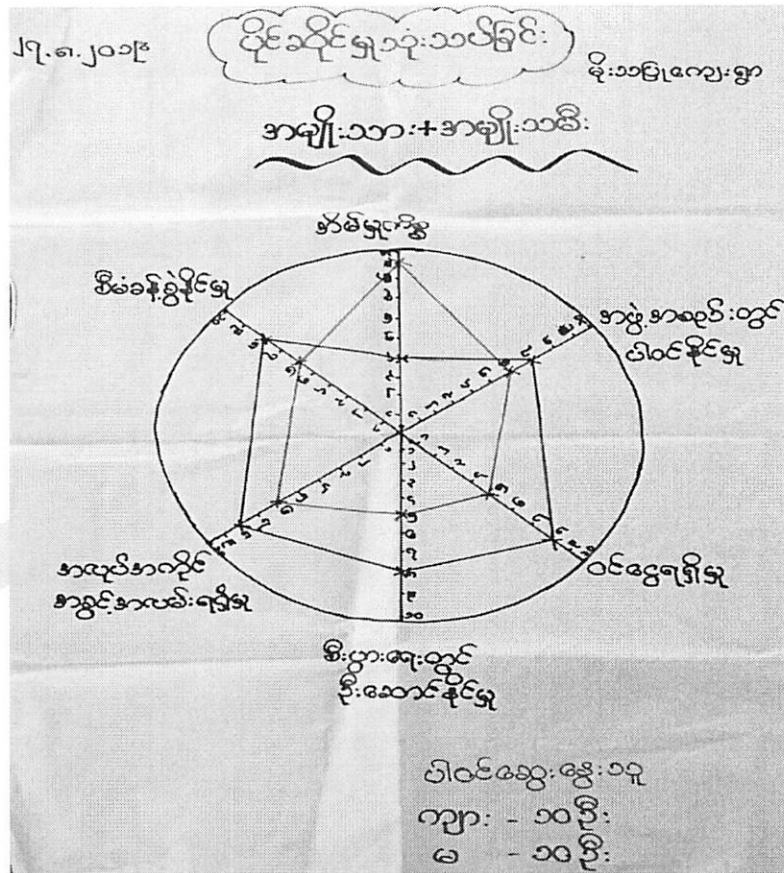 ၂၇.၈.၂၀၁၉
ပိုင်ဆိုင်မှုသုံးသပ်ခြင်း
မိုးသာပြုကျေးရွာ
အမျိုးသား+အမျိုးသမီး
အိမ်မှုကိစ္စ
စီမံခန့်ခွဲနိုင်မှု
အဖွဲ့အစည်းတွင်
ပါဝင်နိုင်မှု
အလုပ်အကိုင်
အခွင့်အလမ်းရရှိမှု
ဝင်ငွေရရှိမှု
စီးပွားရေးတွင်
ဦးဆောင်နိုင်မှု
ပါဝင်ဆွေးနွေးသူ
ကျား - ၁၀ဦး
မ - ၁၀ဦး